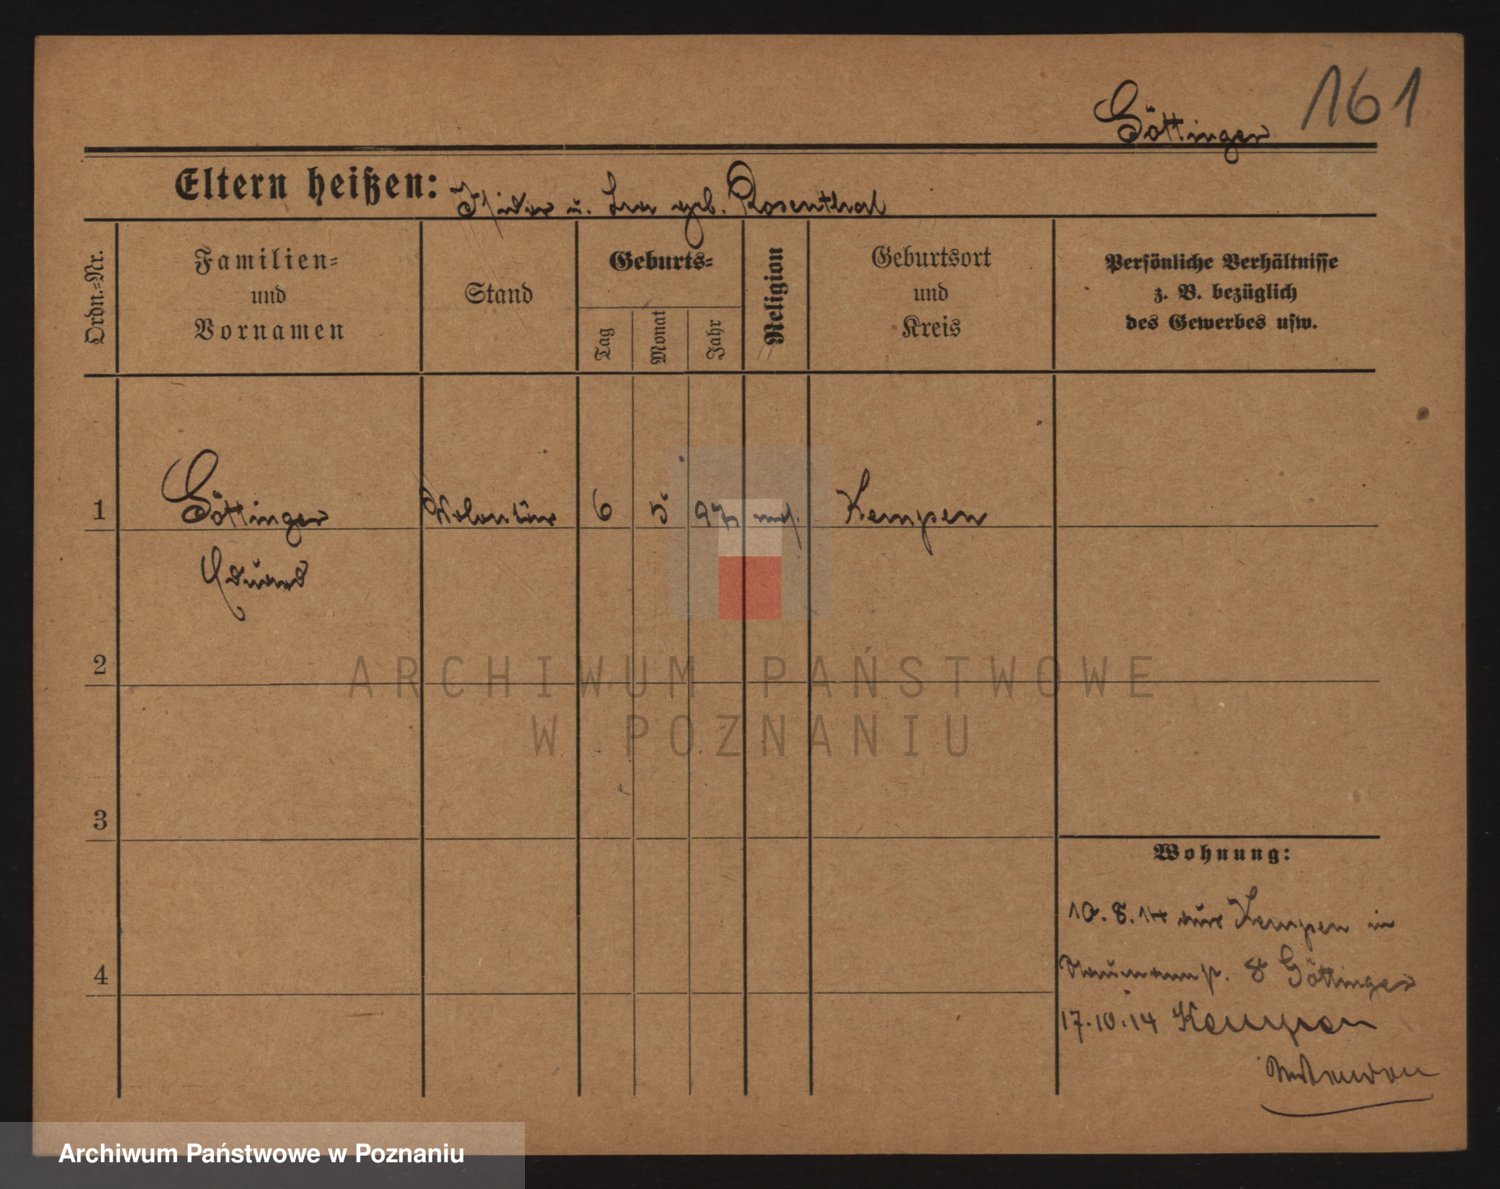 161
Göttinger
Eltern heißen: Isidor u. geb. Rosenthal
Ordn.=Nr.
Familien=
und
Vornamen
Stand
Geburts=
Tag
Monat
Jahr
Religion
Geburtsort
und
Kreis
Persönliche Verhältnisse
z. B. bezüglich
des Gewerbes usw.
1 Göttinger Volontär 6 5 97 mos. Kempen
Eduard
2
3
4
Wohnung:
10.8.14 aus Kempen in
Naumannstr. 8 Göttinger
17.10.14 Kempen
ARCHIWUM PAŃSTWOWE
W POZNANIU
Archiwum Państwowe w Poznaniu